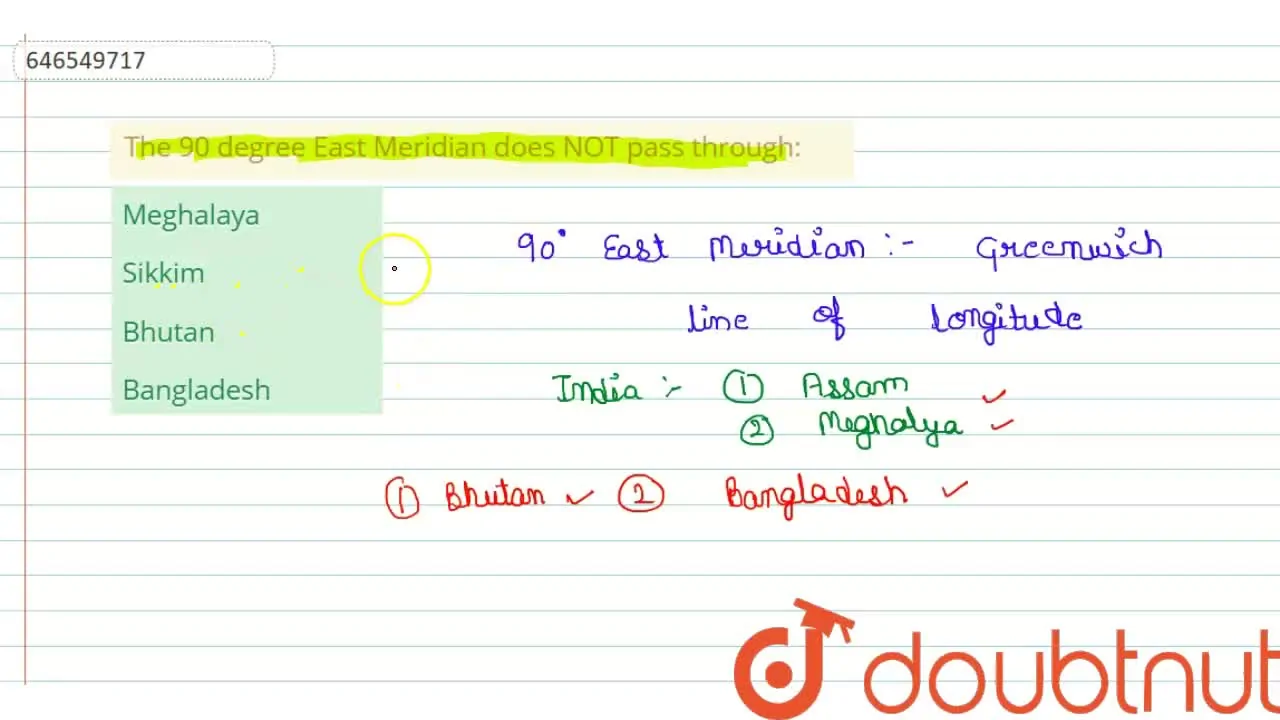 646549717
The 90 degree East Meridian does NOT pass through:
Meghalaya
Sikkim
Bhutan
Bangladesh
90° East Meridian :- Greenwich
line of longitude
India :- ① Assam ✓
② Meghalya ✓
① Bhutan ✓ ② Bangladesh ✓
doubtnut